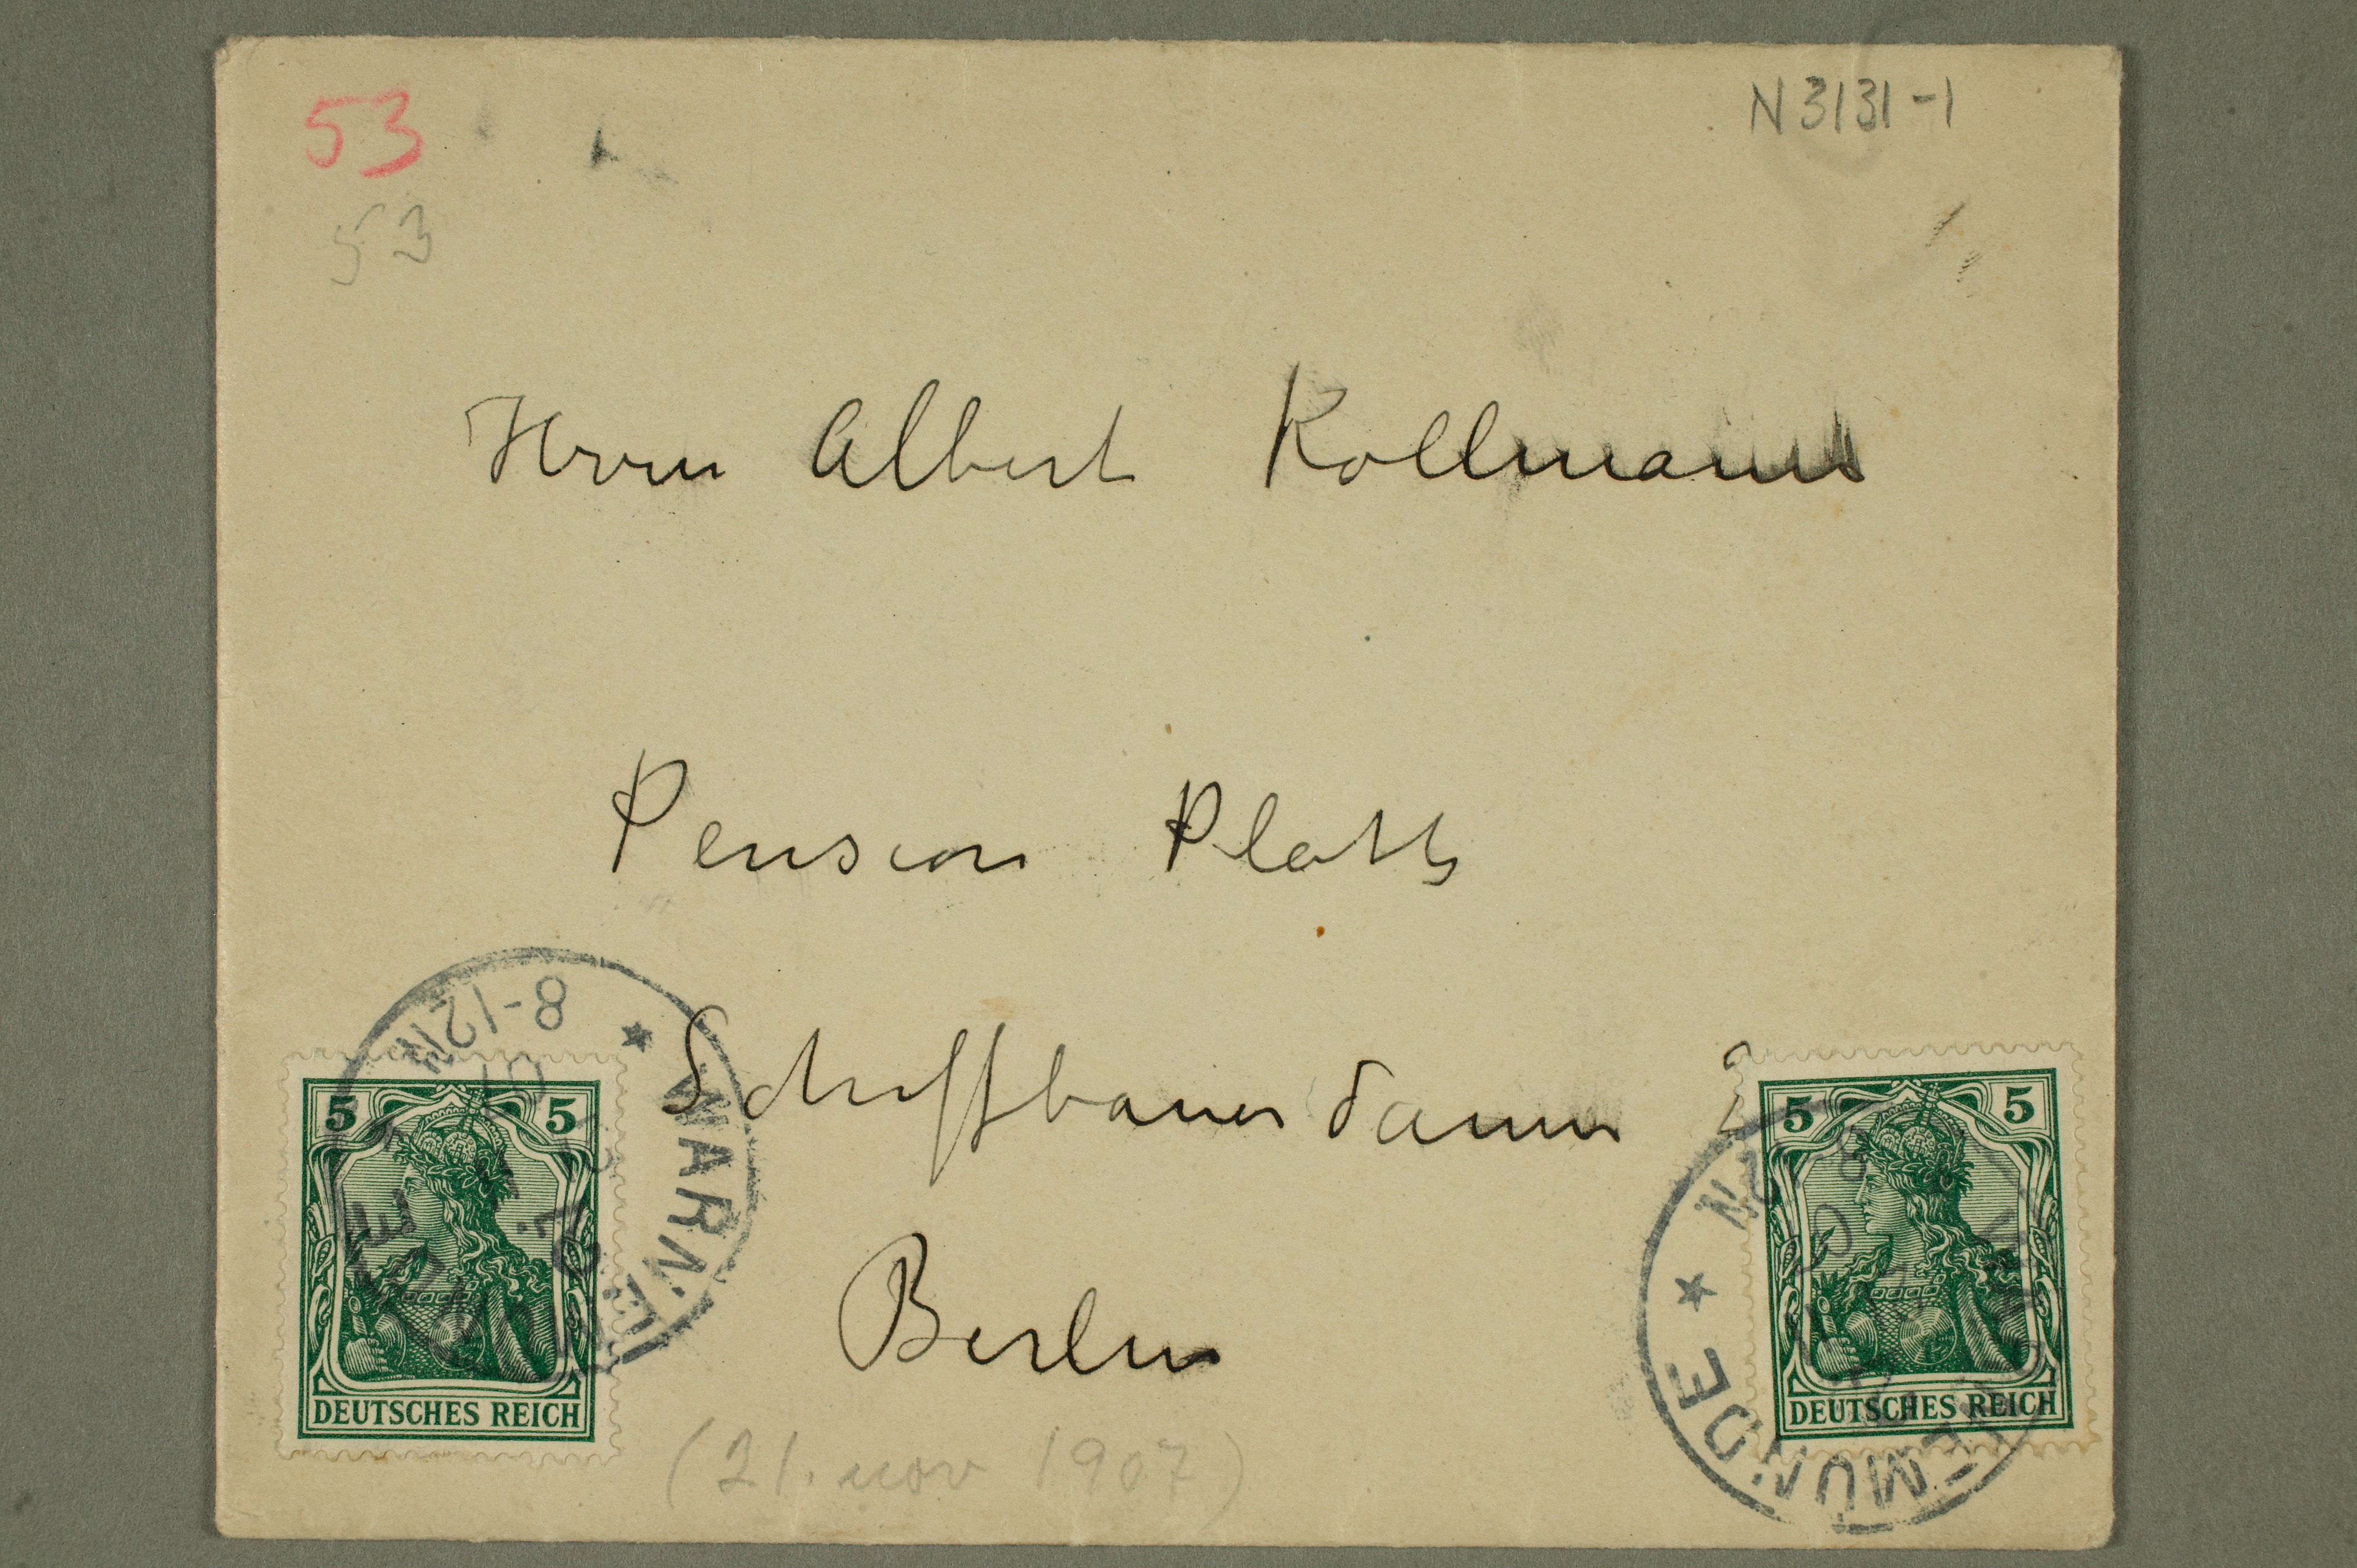 53
N 3131-1
53
Herrn Albert Kollmann
Pension Plath
Schiffbauerdamm 2
Berlin
8-12N
WARNEMÜNDE
5 5
DEUTSCHES REICH
5 5
DEUTSCHES REICH
WARNEMÜNDE
(21. nov 1907)